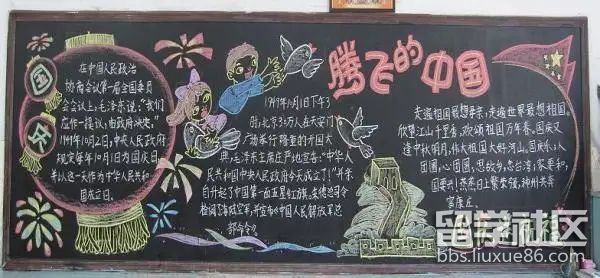 国
庆
在中国人民政治
协商会议第一届全国委员
会会议上，毛泽东说："我们
应作一提议，由政府决定。"
1949年10月2日，中央人民政府
规定每年10月1日为国庆日，
并以这一天作为中华人民共和
国成立日。
腾飞的中国
1949年10月1日下午3
时，北京30万人在天安门
广场举行隆重的开国大
典，毛泽东主席庄严地宣告："中华人
民共和国中央人民政府今天成立了！"并亲
自升起了中国第一面五星红旗。朱德总司令
检阅了海陆空军，并宣布《中国人民解放军总
部命令》
走遍祖国最想亲亲，走遍世界最想祖国。
欣望江山千里秀，欢颂祖国万年春。国庆又
逢中秋明月，伟大祖国大好河山。国庆彤，人
团圆，心团圆，思故乡，念台湾，家要和，
国要兴！蒸蒸日上繁荣强，神州共奔
富康庄。
留学社区
bbs.liuxue86.com